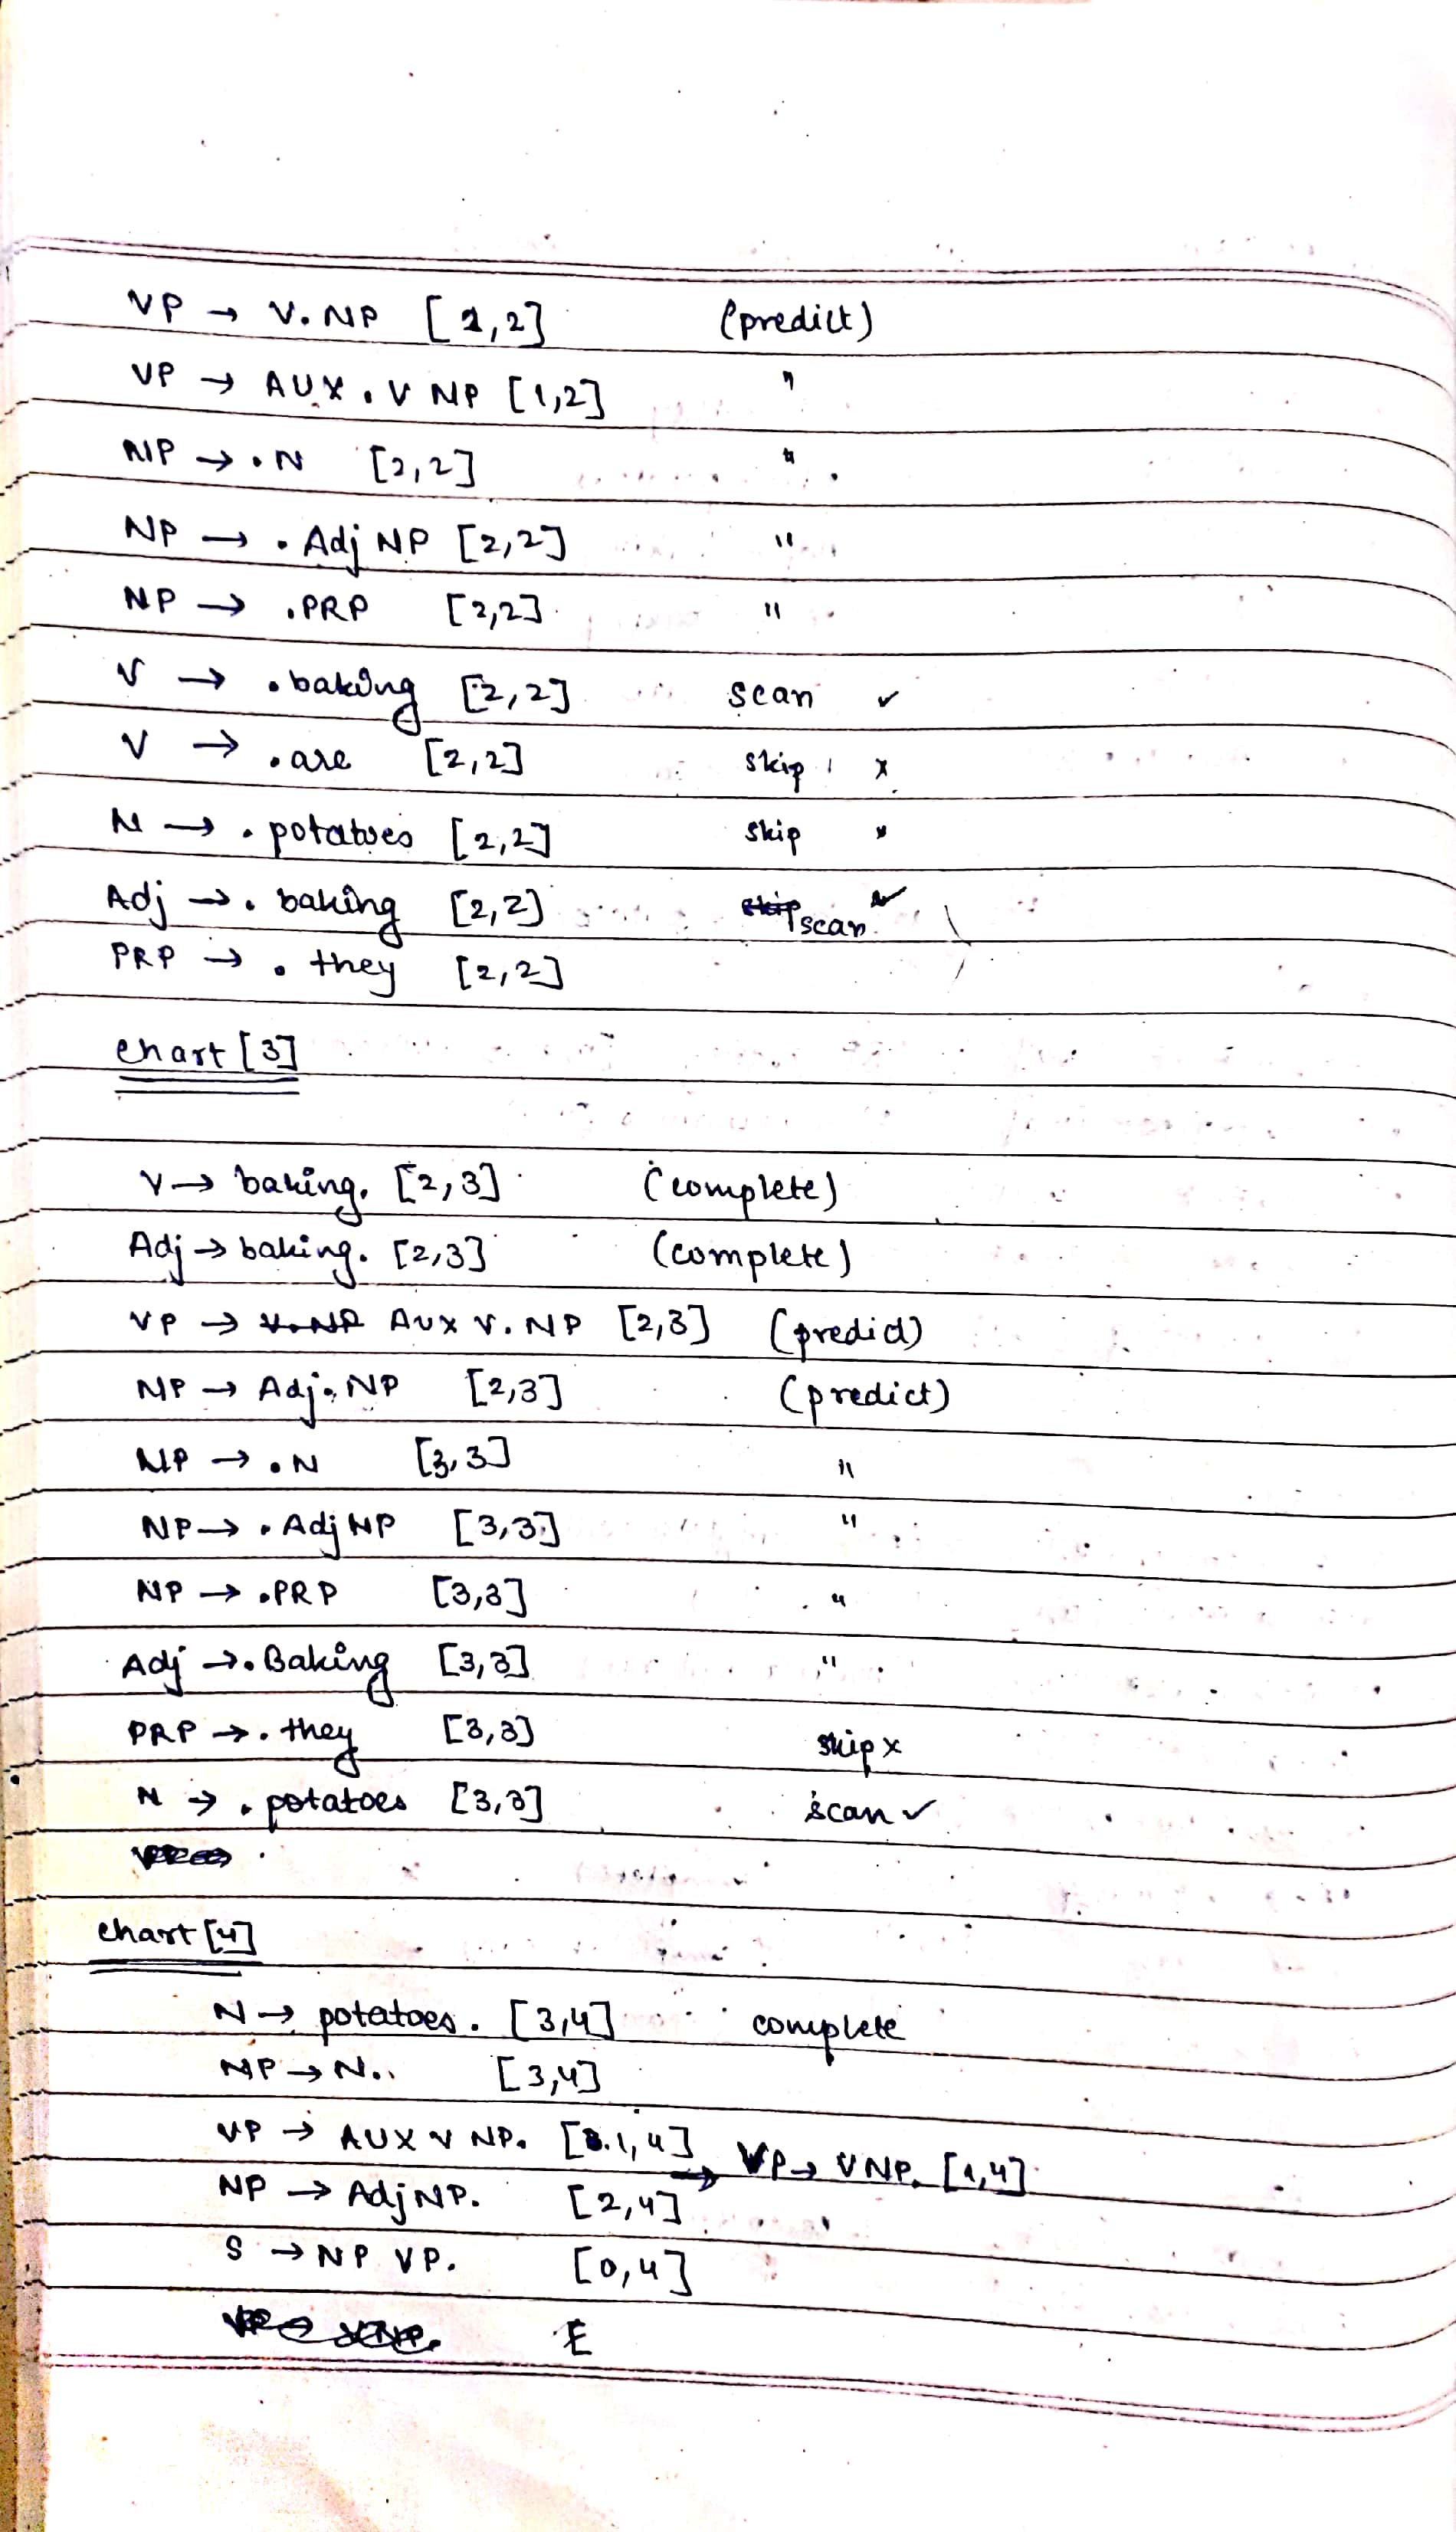 VP → V. NP [1,2] (predict)
VP → AUX . V NP [1,2] "
NP → . N [2,2] "
NP → . Adj NP [2,2] "
NP → .PRP [2,2] "
V → . baking [2,2] scan ✓
V → . are [2,2] skip x
N → . potatoes [2,2] skip x
Adj → . baking [2,2] scan ✓
PRP → . they [2,2]
chart [3]
V → baking. [2,3] (complete)
Adj → baking. [2,3] (complete)
VP → AUX V. NP [2,3] (predict)
NP → Adj. NP [2,3] (predict)
NP → . N [3,3] "
NP → . Adj NP [3,3] "
NP → .PRP [3,3] "
Adj → . Baking [3,3] "
PRP → . they [3,3] skip x
N → . potatoes [3,3] scan ✓
chart [4]
N → potatoes. [3,4] complete
NP → N.. [3,4]
VP → AUX V NP. [1,4] → VP → V NP. [1,4]
NP → Adj NP. [2,4]
S → NP VP. [0,4]